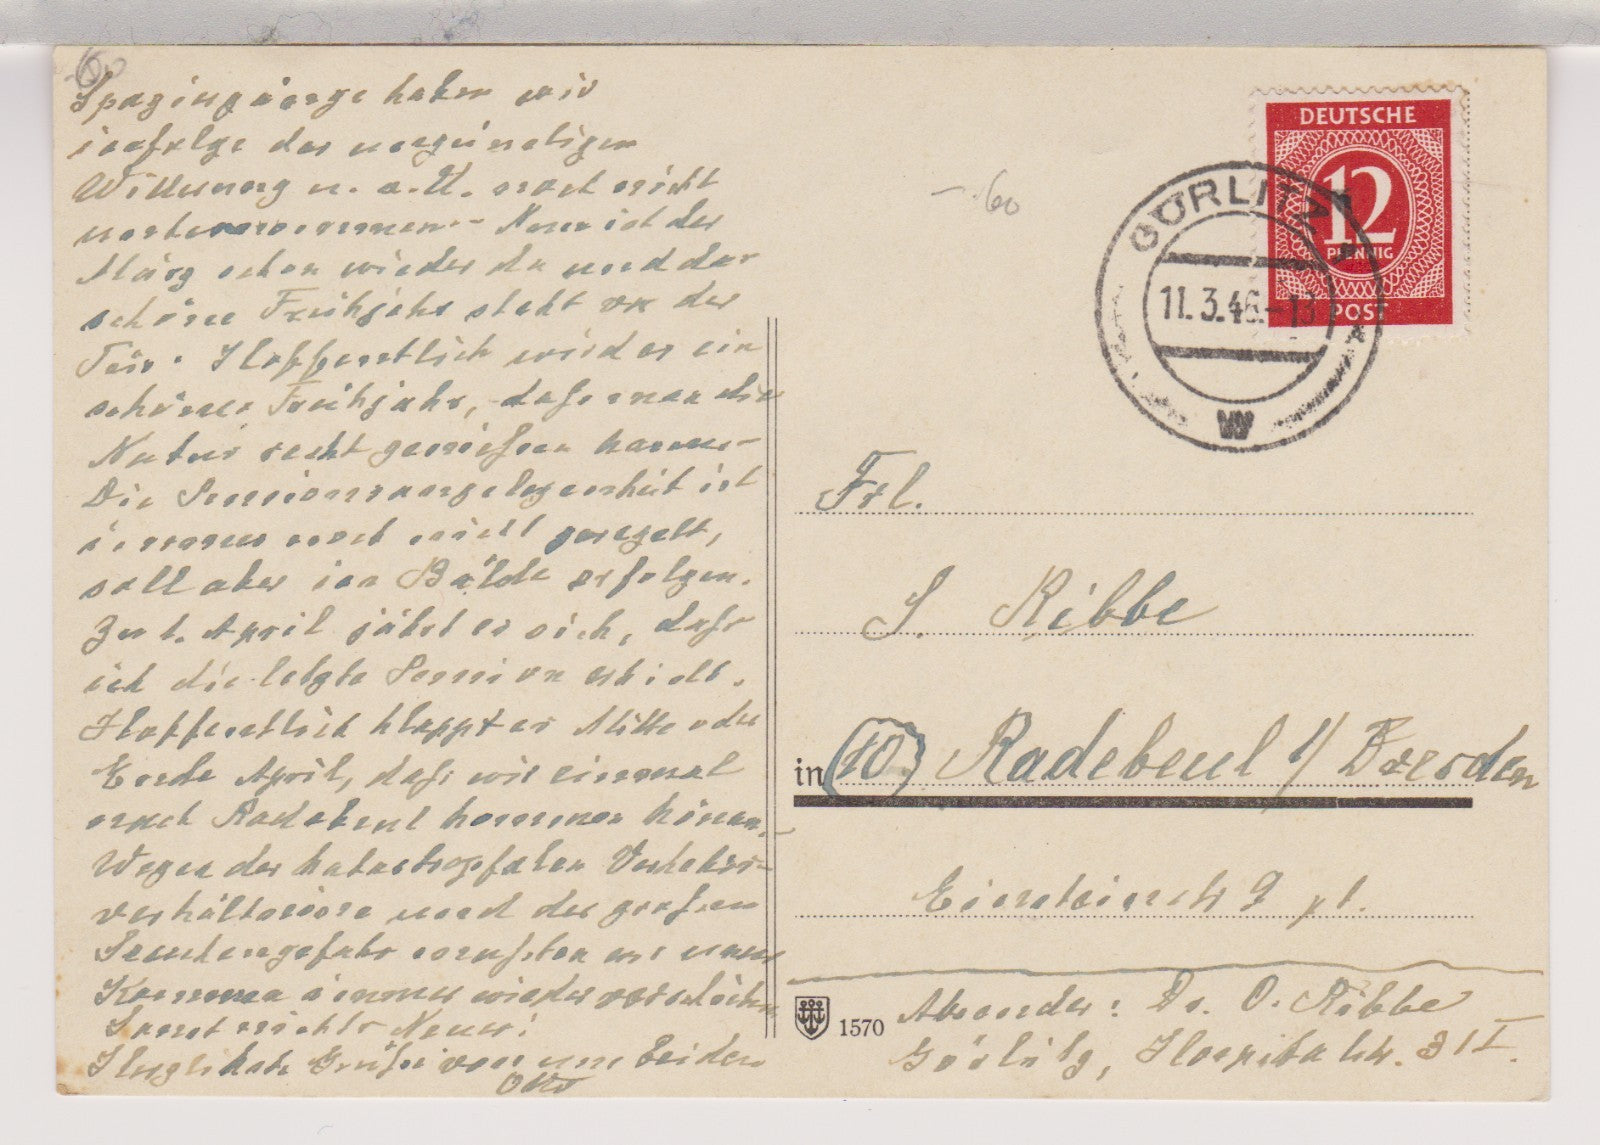 Spaziergänge haben wir
infolge der ungünstigen
Witterung u. a. U. noch nicht
unternommen. - Nun ist der
März schon wieder da und das
schöne Frühjahr steht vor der
Tür. Hoffentlich wird es ein
schönes Frühjahr, daß man die
Natur recht genießen kann. -
Die Pensionsangelegenheit ist
immer noch nicht geregelt,
soll aber in Bälde erfolgen.
Zu 1. April jährt es sich, daß
ich die letzte Pension erhielt.
Hoffentlich klappt es Mitte oder
Ende April, daß wir einmal
nach Radebeul kommen können.
Wegen der katastrophalen Verkehrs-
verhältnisse und der großen
Seuchengefahr mußten wir unser
Kommen immer wieder verschieben
Sonst nichts Neues!
Herzlichste Grüße von uns beiden
Otto
60
-.60
DEUTSCHE
12
PFENNIG
POST
GÖRLITZ
11.3.46.-13
W
Frl.
S. Ribbe
in (10) Radebeul 1/ Dresden
Einsteinstr 9 pt.
1570
Absender: Dr. O. Ribbe
Görlitz, Hospitalstr. 3 I I.